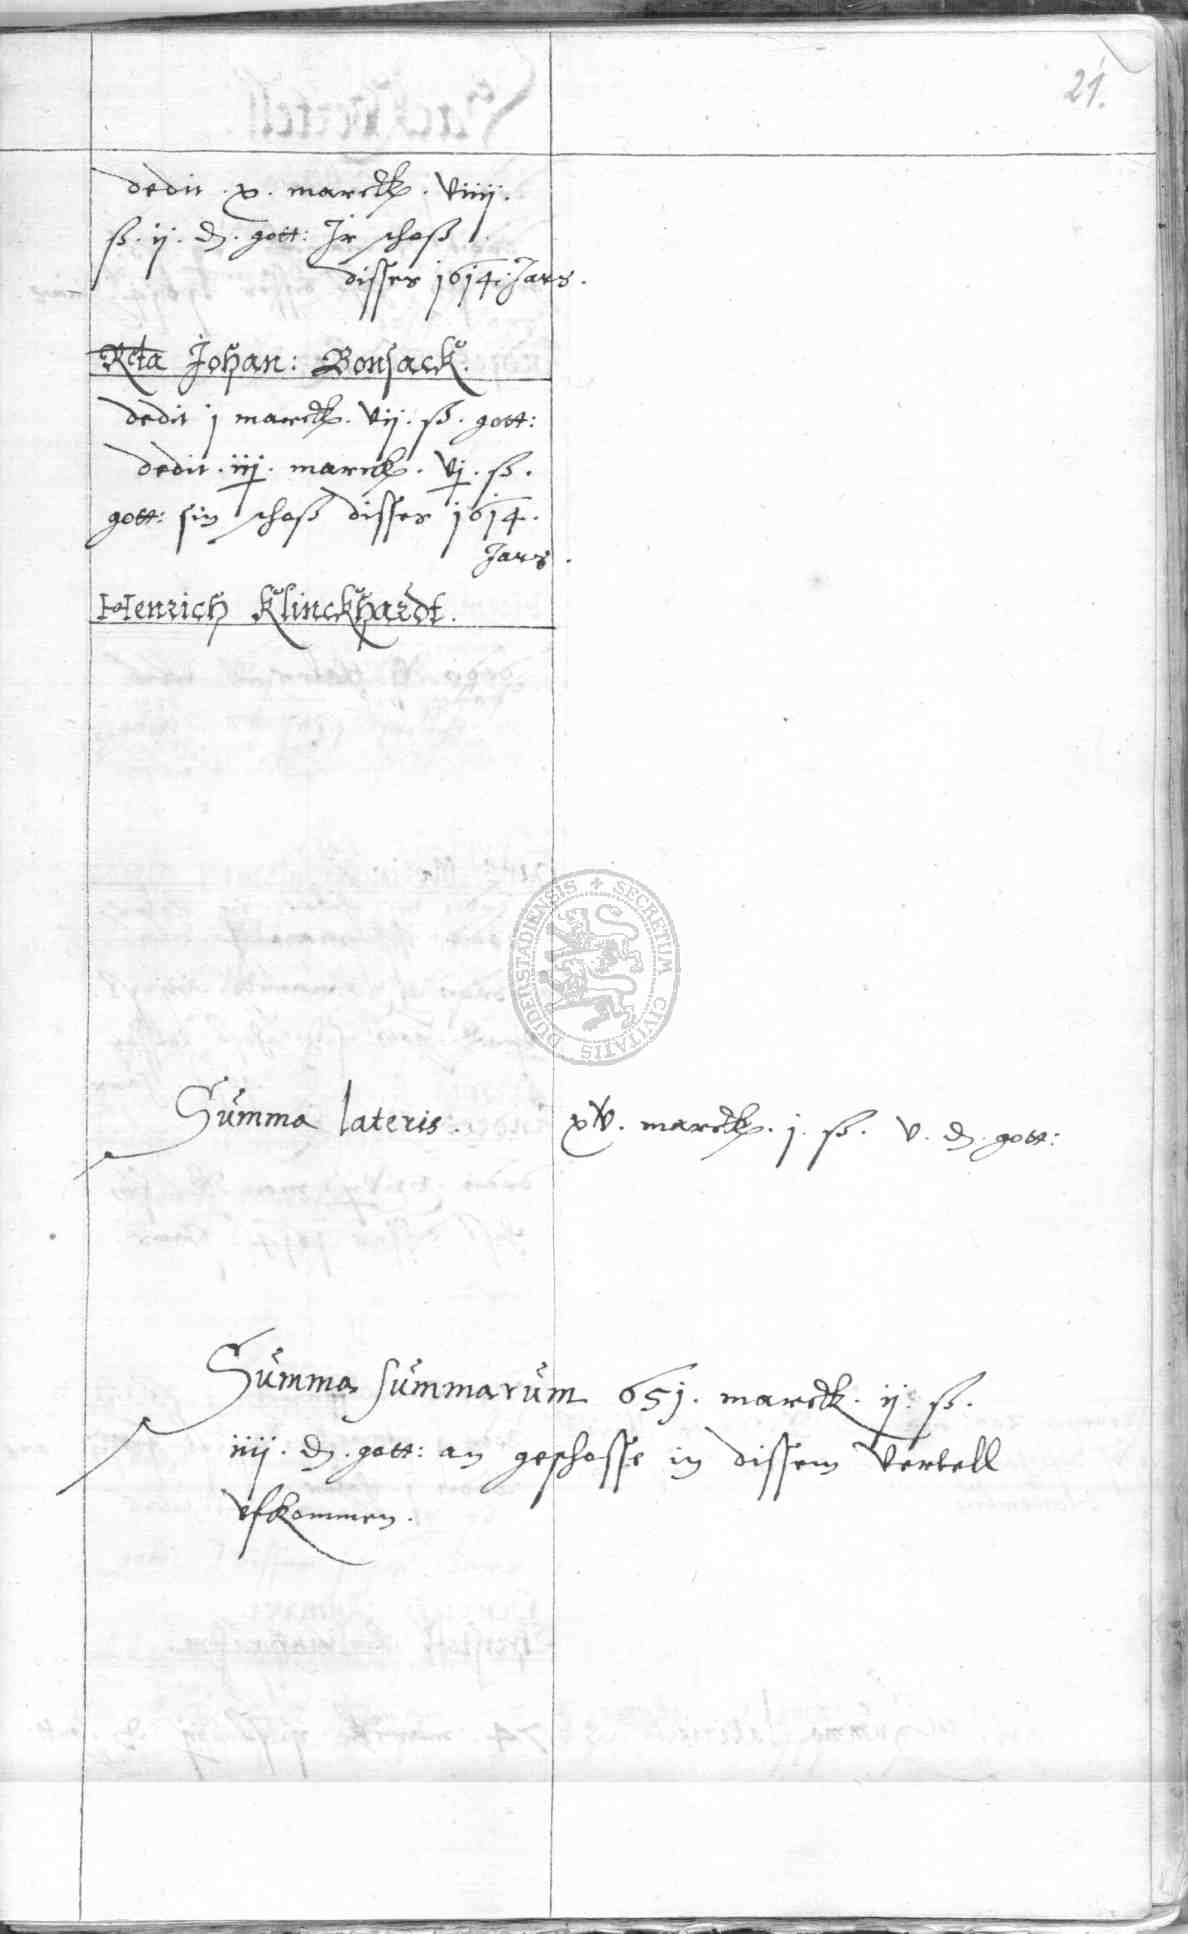 21.
dedit . x . marck . viiij .
ß . ij . d . gott: Jr schoß
disses 1614. Jars .
Rcta Johan: Bonsack .
dedit j marck . vij . ß . gott:
dedit . iij . marck . vj . ß .
gott: sin schoß disses 1614 .
Jars .
Henrich Klinckhardt .
SECRETUM CIVITATIS DUDERSTADIENSIS
Summa lateris . xv . marck . j . ß . v . d . gott:
Summa summarum 651 . marck . ij . ß .
iiij . d . gott: an geschosse in dissem Vertell
vfkommen .